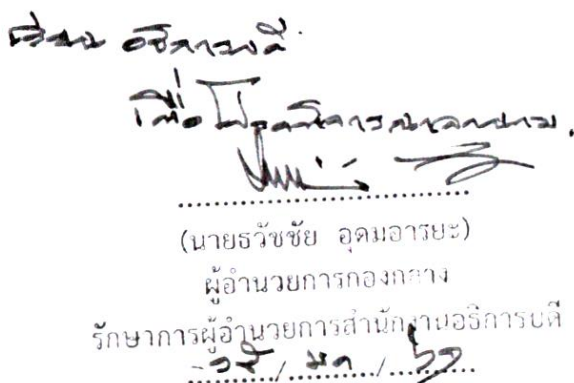 เรียน อธิการบดี
เพื่อโปรดพิจารณาลงนาม
(นายธวัชชัย อุดมอารยะ)
ผู้อำนวยการกองกลาง
รักษาการผู้อำนวยการสำนักงานอธิการบดี